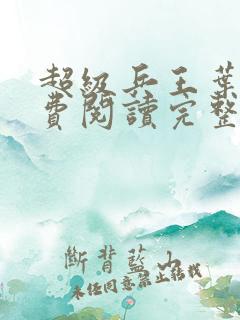 超級兵王葉
費閱讀完整
斷背藍山
未经同意禁止转载